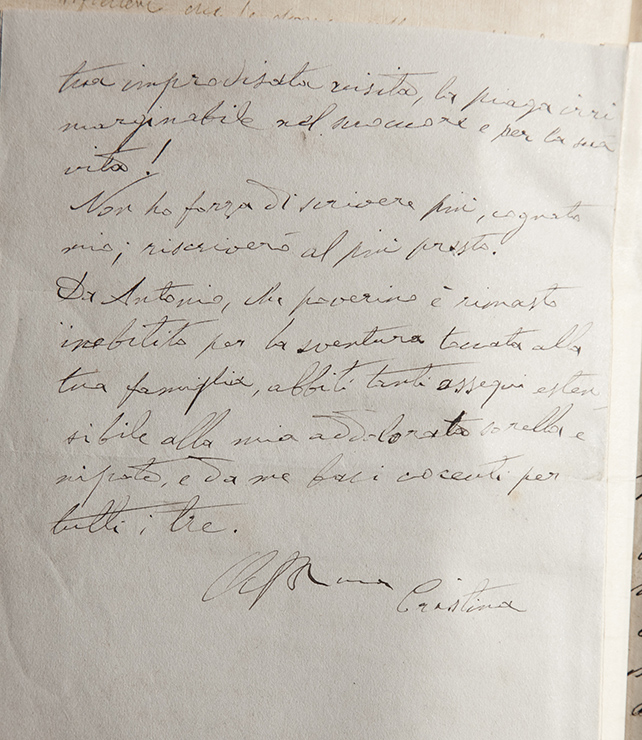 tua improvisata visita, la piaga irri
marginabile nel mio cuore e per la sua
vita!
Non ho forza di scrivere più, cognato
mio; riscriverò al più presto.
Da Antonio, che poverino è rimasto
inebitito per la sventura toccata alla
tua famiglia, abbiti tanti ossequi esten-
sibile alla mia addolorata sorella e
nipote, e da me baci cocenti per
tutti i tre.
Cristina